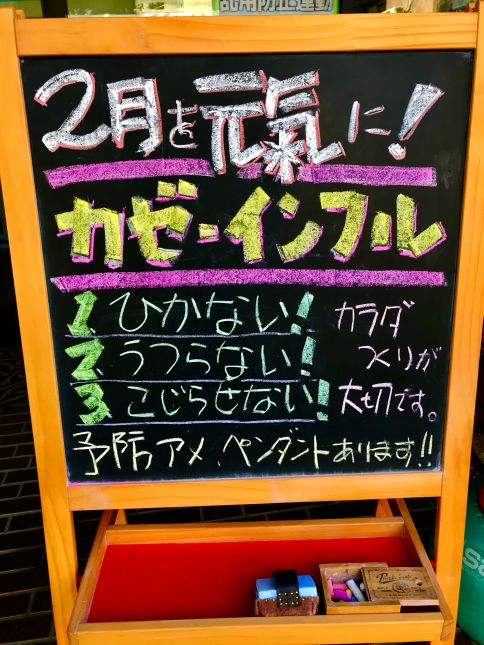 乱用防止運動
2月を元氣に!
カゼ・インフル
1. ひかない!
2. うつらない!
3. こじらせない!
カラダ
つくりが
大切です。
予防アメ、ペンダントあります!!